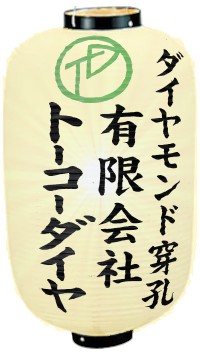 ダイヤモンド穿孔
有限会社
トーコーダイヤ